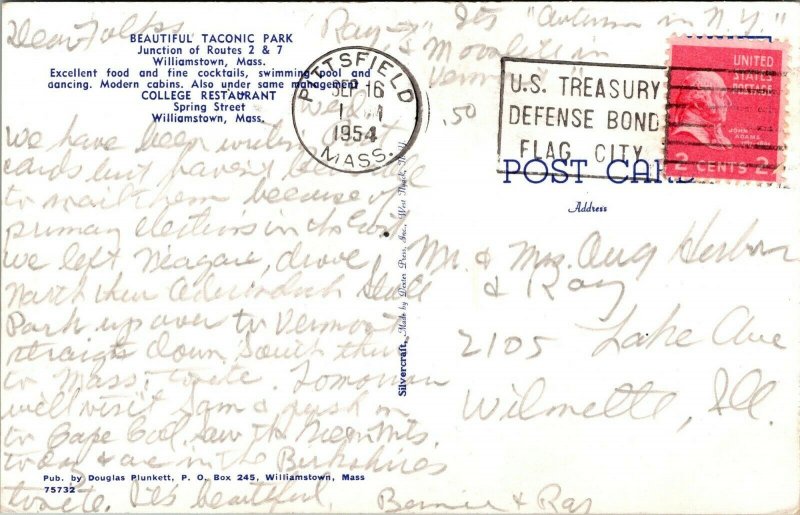 Dear Folks
BEAUTIFUL TACONIC PARK
Junction of Routes 2 & 7
Williamstown, Mass.
Excellent food and fine cocktails, swimming pool and
dancing. Modern cabins. Also under same management
COLLEGE RESTAURANT
Spring Street
Williamstown, Mass.
Wed.
We have been writing
cards but haven't been able
to mail them because of
primary elections in the East
we left Niagara, drove
North thru Adirondack State
Park up over to Vermont
straight down South thru
to Mass, tonite. Tomorrow
we'll visit Sam & push on
to Cape Cod. Saw the Green Mts.
today & are in the Berkshires
Pub. by Douglas Plunkett, P. O. Box 245, Williamstown, Mass
75732
tonite. It's beautiful.
Bernice & Ray
Silvercraft. Made by Dexter Press, Inc., West Nyack, N.Y.
Ray - It's "Autumn in N.Y."
& Moonlite in
Vermont"
.50
PITTSFIELD
SEP 16
1954
MASS.
U.S. TREASURY
DEFENSE BOND
FLAG CITY
UNITED
STATES
POSTAGE
JOHN
ADAMS
2 CENTS 2
POST CARD
Address
Mr. & Mrs. Aug
& Ray
2105 Lake Ave
Wilmette, Ill.